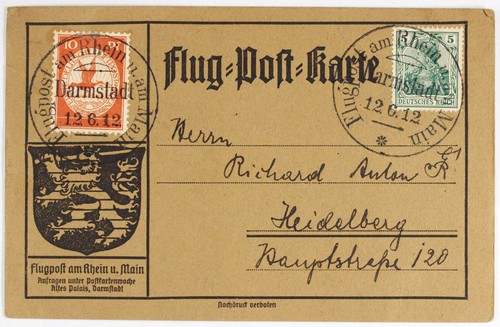 Flug-Post-Karte
10
Flugpost am Rhein u. am Main
Darmstadt
12.6.12
5
DEUTSCHES REICH
Flugpost am Rhein u. am Main
Darmstadt
12.6.12
Herrn
Richard Anton
Heidelberg
Hauptstraße 120
Flugpost am Rhein u. Main
Anfragen unter Postkartenwoche
Altes Palais, Darmstadt
Nachdruck verboten